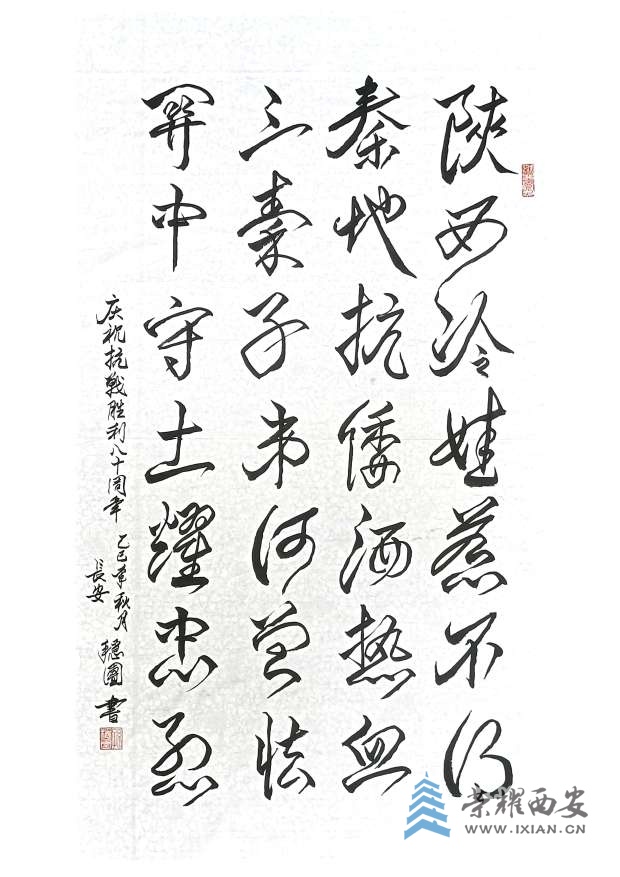 陕西冷娃惹不得
秦地抗倭洒热血
三秦子弟何曾怯
関中守土耀忠烈
庆祝抗战胜利八十周年 乙巳年秋月
长安 穏圃 書
荣耀西安
WWW.IXIAN.CN